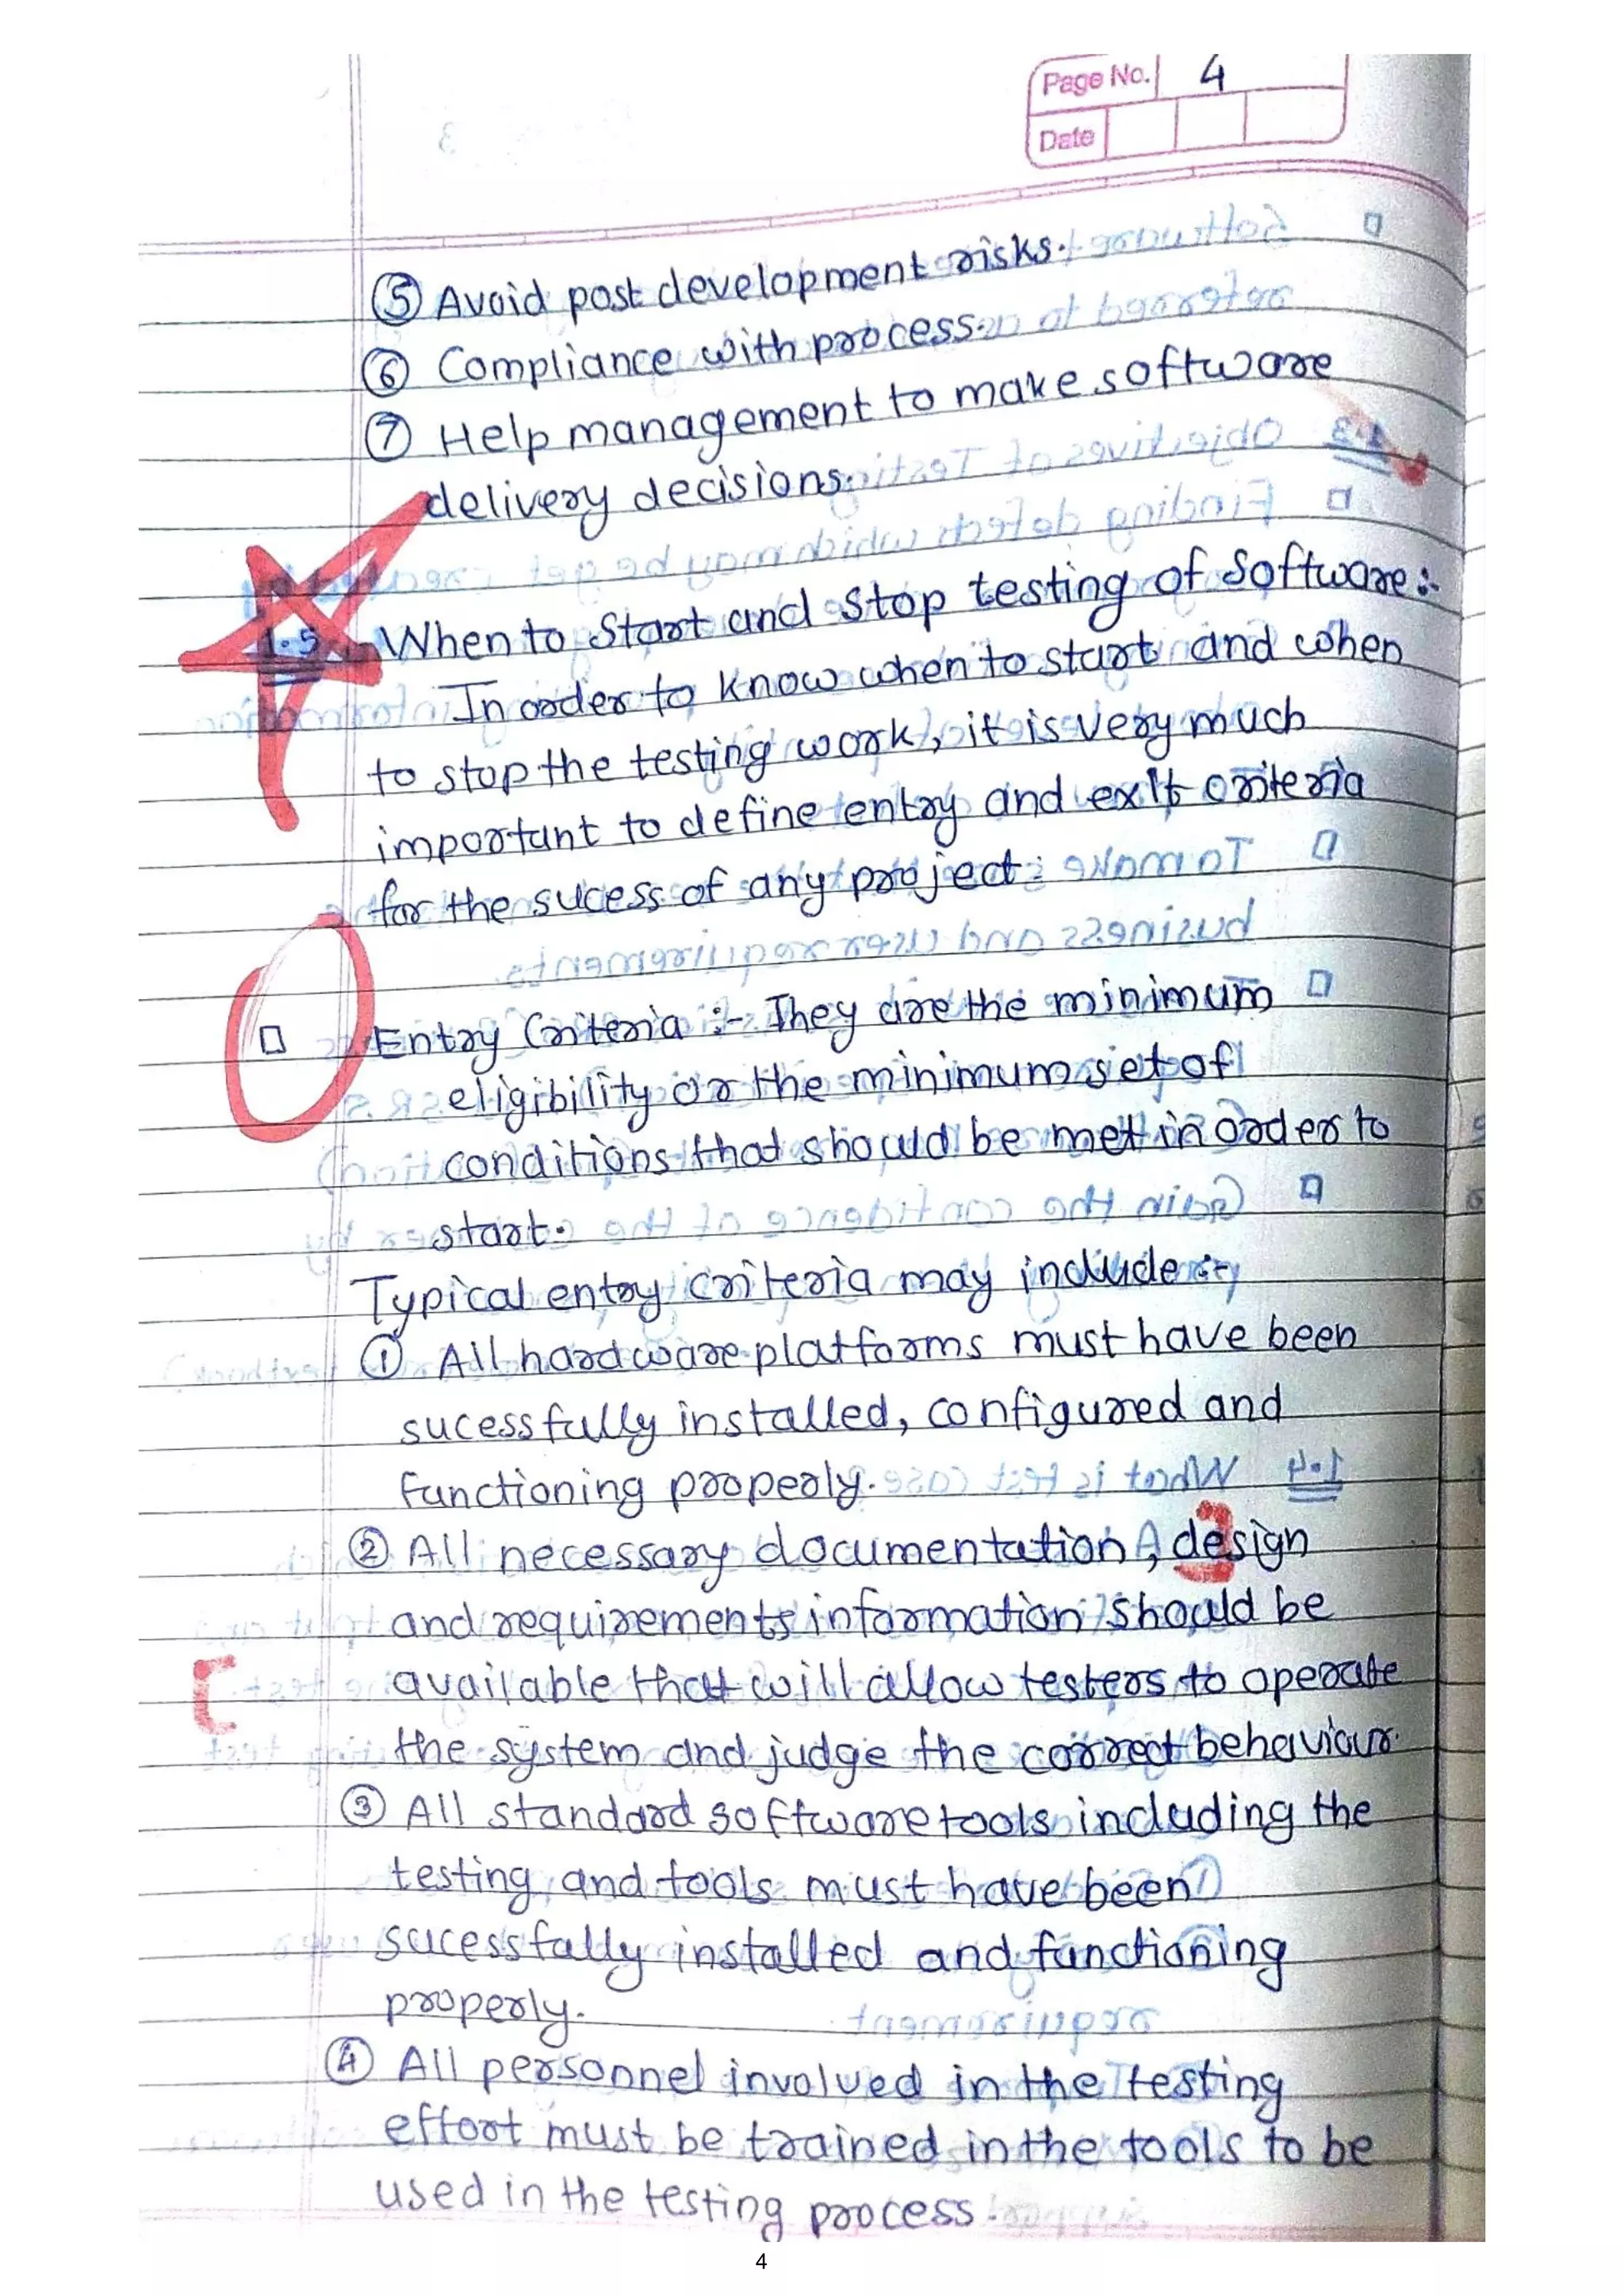 Page No. 4
Date
⑤ Avoid post development risks.
⑥ Compliance with process.
⑦ Help management to make software
delivery decisions.
1.5 When to Start and Stop testing of Software :-
In order to know when to start and when
to stop the testing work, it is very much
important to define entry and exit criteria
for the sucess of any project :
□ Entry Criteria :- They are the minimum
eligibility or the minimum set of
conditions that should be met in order to
start.
Typical entry criteria may include :-
① All hardware platforms must have been
sucessfully installed, configured and
functioning properly.
② All necessary documentation, design
and requirements information should be
available that will allow testers to operate
the system and judge the correct behaviour.
③ All standard software tools including the
testing and tools must have been
sucessfully installed and functioning
properly.
④ All personnel involved in the testing
effort must be trained in the tools to be
used in the testing process.
4